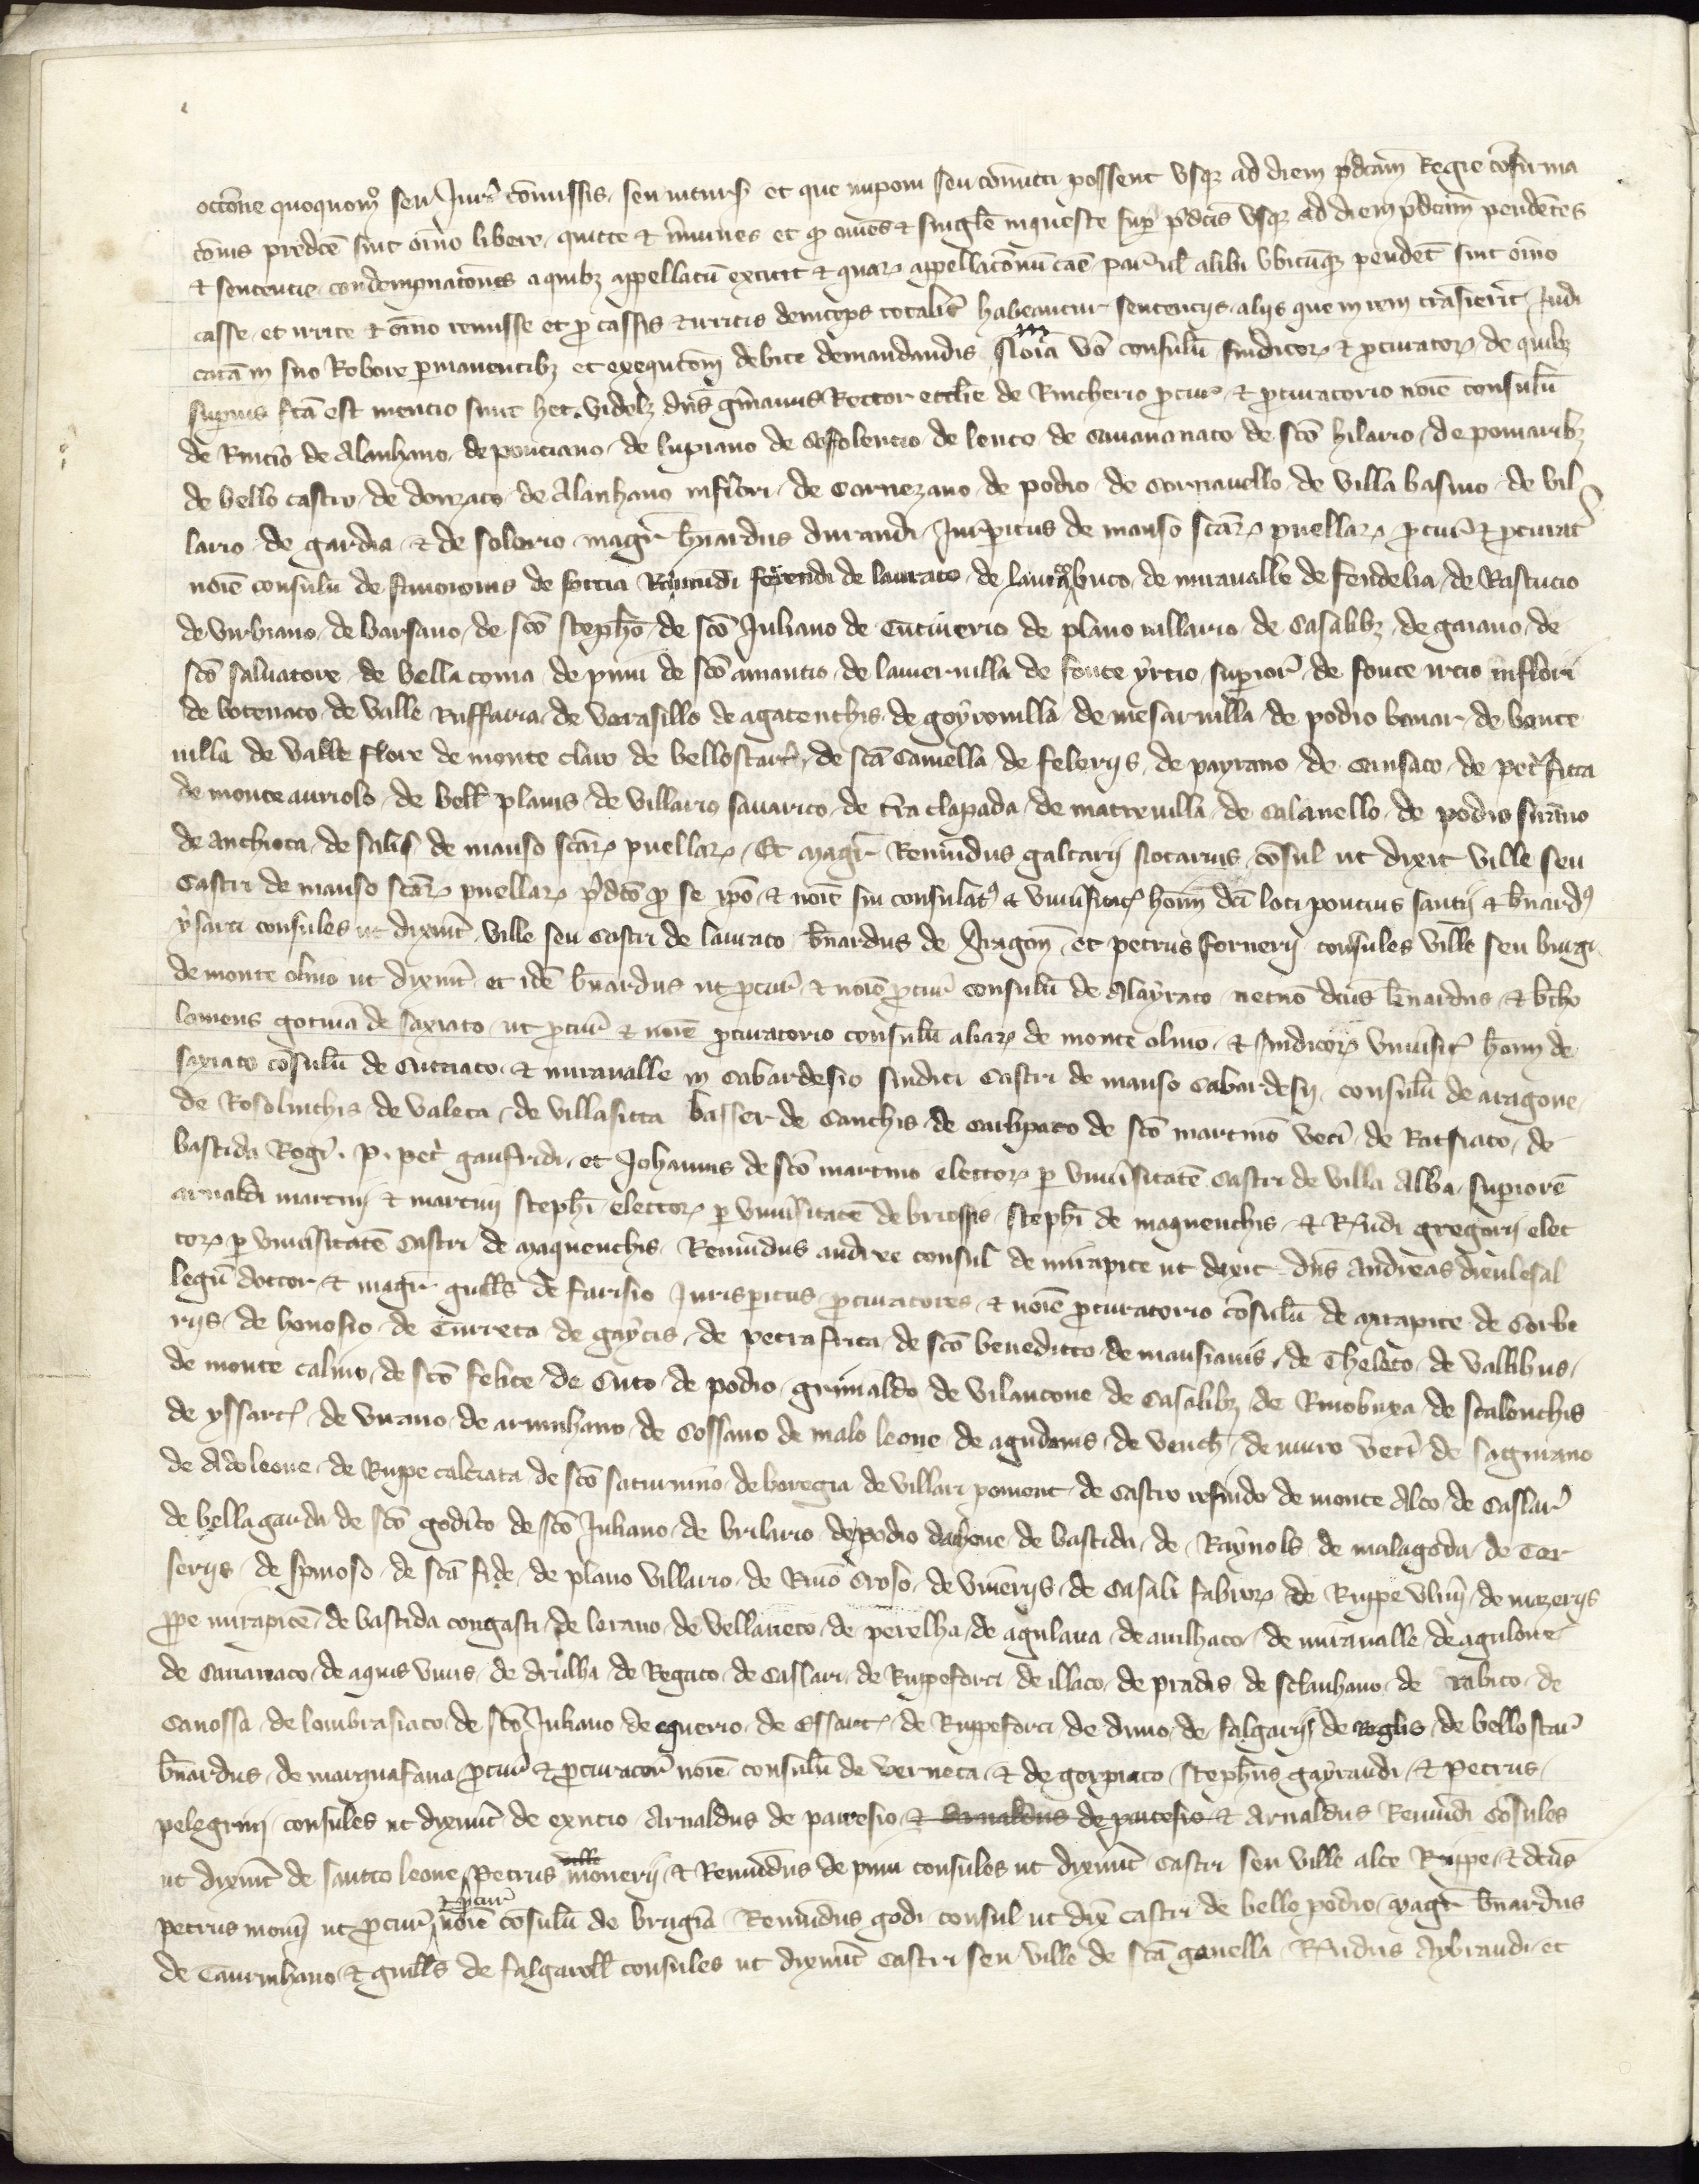 occone quoquomo seu Jur comissis seu incurs et que inponi seu comitti possent Usque ad diem pdcam Regie cofirma
conis predce sint oino libere quitte et imunes et quod omes et singule inqueste sup pdcis Usque ad diem pdcam pendentes
et sentencie condempnacones a quibz appellatum extitit et quar appellaconu cae par ul alibi ubicuqz pendet sint oino
casse et irrite et oino remisse et pro cassis et irritis deinceps totalit habeantur sentenciis aliis que in rem trasierit Judi
catam in suo Robore permanentibz et exequcom debite demandandis Noia vo consulum sindicor et procurator de quibz
superius fca est mencio sunt hec videlz dns Gmanus Rector ecclie de Rincherio procur et procuratorio noie consulum
de Rincio de Alanhano de ponciano de lupiano de Cofolencio de lenco de Cauananaco de sco hilario de pomaribz
de bello castro de donzaco de Alanhano inferiori de Cornezano de podio de Cornauello de villa basino de vil
lario de gardia et de solario magr bnardus durandi Jurispitus de manso scar puellar procur et procurat
noie consulum de fanoiouis de fortia Raimundi ferrendi de laurato de laurabuco de miraualle de fendelia de Rastucio
de Virbiano de barsano de sco stepho de sco Juliano de Cucuuerio de plano uillario de Casalibz de gaiano de
sco saluatore de bella coma de pinu de sco amantio de laueruilla de fonte yrcio superior de fonte ircio inferiori
de botenaco de valle Ruffaria de Varasillo de agatenchis de goyrouilla de mesaruilla de podio benar de bonte
uilla de valle flore de monte claro de bellostar de sca Camella de feleriis de payrano de Cansaco de petra ficta
de monte auriolo de bell planis de villario sauarico de tra clapada de matreuilla de Calauello de podio surano
de anchioca de salis de manso scar puellar Et magr Remundus galtarii Notarius cosul ut dixit ville seu
Castri de manso scar puellar pdco pro se ipo et noie sui consulat et Uniusitat hoim dci loci poncius santii et bnardus
ysarti consules ut dixerunt ville seu Castri de laurato bnardus de Aragon et petrus fornerii consules ville seu burgi
de monte olmo ut dixerunt et ide bnardus ut procur et noie procur consulum de Alayraco necno dcus bnardus et btho
lomeus gotina de saxiato ut procur et noie procuratorio consulum aliar de monte olmo et sindicor Uniusit hoim de
saxiato cosulum de Cucciaco et miraualle in Cabardesio sindici Castri de manso Cabardesii consulum de aragone
de Rosolinchis de Valeta de villasicca basser de Canchis de Carlipaco de sco martino veci de Ratsiaco de
bastida Rogi P petri gaufridi et Johannis de sco martino elector per Uniusitatem Castri de villa Alba superiore
arnaldi martini et martini stephi elector per Uniusitatem de briossis stephi de maquenchis et R undi gregorii elec
tor per Uniusitatem Castri de maquenchis Remundus andree consul de mirapice ut dixit dns Andreas dieulesal
legum doctor et magr guills de farisio Jurisperitus procuratores et noie procuratorio cosulum de mirapice de Corbe
riis de henosio de Curreta de gaytis de petrafrica de sco benedicto de mansianis de Theleto de vallibus
de monte calmo de sco felice de Cuto de podio grimaldo de vilancone de Casalibz de Riuobuxa de scalonchis
de yssart de virano de arminhano de Cossano de malo leone de agudanis de Uench de muro veci de saginano
de Adoleone de Ruppe calciata de sco saturnino de boregia de villari pomont de Castro refundo de monte Alto de Caslar
de bella garda de sco godico de sco Juliano de brilario de podio darbone de bastida de Raynols de malagoda de Cor
seriis de spinoso de sca fide de plano villario de Riuo Croso de vineriis de Casali fabror de Ruppe ulmi de mazeriis
ppe mirapice de bastida congasti de lerano de vellaneto de perelha de agulana de auilhaco de miraualle de agulone
de Cauanaco de aquis vinis de drulha de Regaco de Caslari de Ruppeforti de illaco de pradis de sclanhano de rabito de
Canossa de lombrasiaco de sco Juliano de equerio de Essart de Ruppeforti de duno de falgariis de Reglis de bello star
bnardus de marquafaua procur et procurator noie consulum de verneta et de gorpiaco stephus gayraudi et Petrus
pelegrini consules ut dixerunt de exincio Arnaldus de paresio et Arnaldus de paresio et Arnaldus Remundi Cosules
ut dixerunt de sancto leone Petrus ville monerii et Remundus de pinu consules ut dixerunt Castri seu ville alte Ruppe et dcus
petrus moni ut procur et procur noie cosulum de brugia Remundus godi consul ut dix castri de bello podio magr bnardus
de Caurinhano et guills de falgaroll consules ut dixerunt castri seu ville de sca gauella R undus Aybrandi et